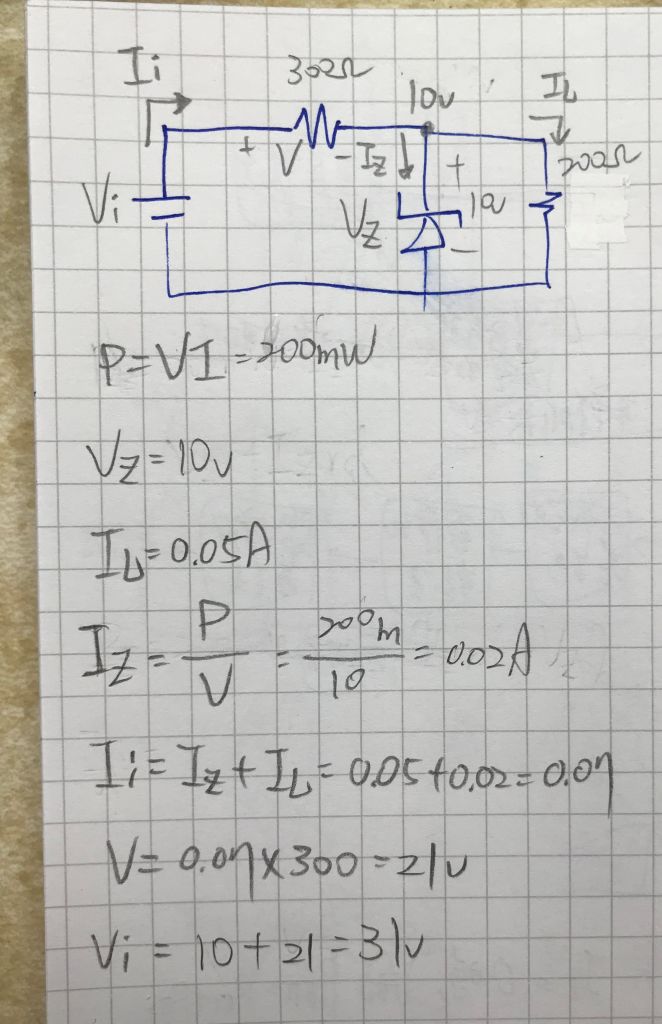 Ii
300Ω
10v
IL
+ V -
Iz
+
200Ω
Vi
Vz
10v
-
P=VI=200mW
Vz=10v
IL=0.05A
Iz = P/V = 200m/10 = 0.02A
Ii = Iz + IL = 0.05+0.02=0.07
V= 0.07×300=21v
Vi = 10+21=31v